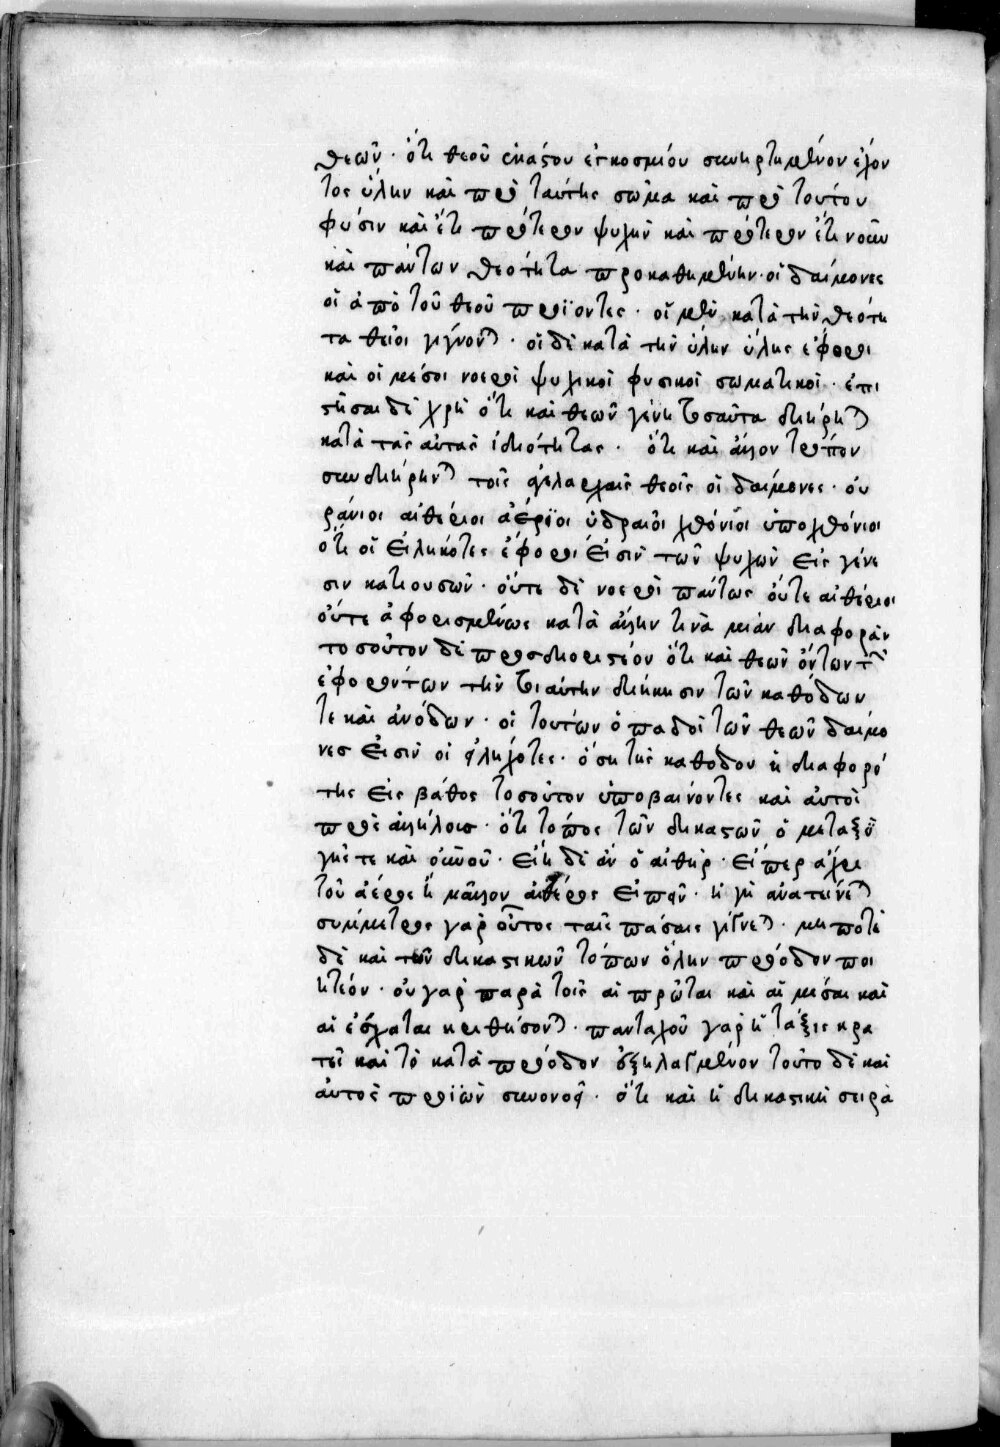 θεῶν· ὅτι θεοῦ ἑκάστου ἐγκοσμίου συνηρτημένον ἔχον
τος ὕλην καὶ πρὸ ταύτης σῶμα καὶ πρὸ τούτου
φύσιν καὶ ἔτι πρότερον ψυχὴν καὶ πρότερον ἔτι νοῦν
καὶ πάντων θεότητα προκαθημένην· οἱ δαίμονες
οἱ ἀπὸ τοῦ θεοῦ προϊόντες· οἱ μὲν κατὰ τὴν θεότη
τα θεῖοι γίγνονται· οἱ δὲ κατὰ τὴν ὕλην ὕλης ἔφοροι
καὶ οἱ μέσοι νοεροὶ ψυχικοὶ φυσικοὶ σωματικοί· ἐπι
στῆσαι δὲ χρὴ ὅτι καὶ θεῶν γένη τοσαῦτα διῄρηται
κατὰ τὰς αὐτὰς ἰδιότητας· ὅτι καὶ ἄλλον τρόπον
συνδιῄρηνται τοῖς φυλάρχαις θεοῖς οἱ δαίμονες· οὐ
ράνιοι αἰθέριοι ἀέριοι ὑδραῖοι χθόνιοι ὑποχθόνιοι
ὅτι οἱ εἰληχότες ἔφοροι εἰσὶν τῶν ψυχῶν εἰς γένε
σιν κατιουσῶν· οὔτε δὲ νοεροὶ πάντως οὔτε αἰθέριοι
οὔτε ἀφορισμένως κατὰ ἄλλην τινὰ μίαν διαφοράν
τοσοῦτον δὲ προσδιοριστέον ὅτι καὶ θεῶν ὄντων τῶν
ἐφορώντων τὴν τοιαύτην διοίκησιν τῶν καθόδων
τε καὶ ἀνόδων· οἱ τούτων ὀπαδοὶ τῶν θεῶν δαίμο
νες εἰσιν οἱ εἰληχότες· ὅση τῆς καθόδου ἡ διαφορό
της εἰς βάθος τοσοῦτον ὑποβαίνοντες καὶ αὐτοὶ
πρὸς ἀλλήλους· ὅτι τόπος τῶν δικαστῶν ὁ μεταξὺ
γῆς τε καὶ οὐρανοῦ· εἴη δὲ ἂν ὁ αἰθήρ· εἴπερ ἄχρι
τοῦ ἀέρος ἢ μᾶλλον αἰθέρος εἰπεῖν· ἡ γῆ ἀνατείνεται
σύμμετρος γὰρ οὗτος ταῖς πάσαις γίγνεται· μήποτε
δὲ καὶ τῶν δικαστικῶν τόπων ὅλην πρόοδον ποι
ητέον· οὐ γὰρ παρὰ τοῖς αἱ πρῶται καὶ αἱ μέσαι καὶ
αἱ ἔσχαται κριθήσονται· πανταχοῦ γὰρ ἡ τάξις κρα
τεῖ καὶ τὸ κατὰ πρόοδον ἐξηλλαγμένον τοῦτο δὲ καὶ
αὐτὸς προϊὼν συννοεῖ· ὅτι καὶ ἡ δικαστικὴ σειρὰ